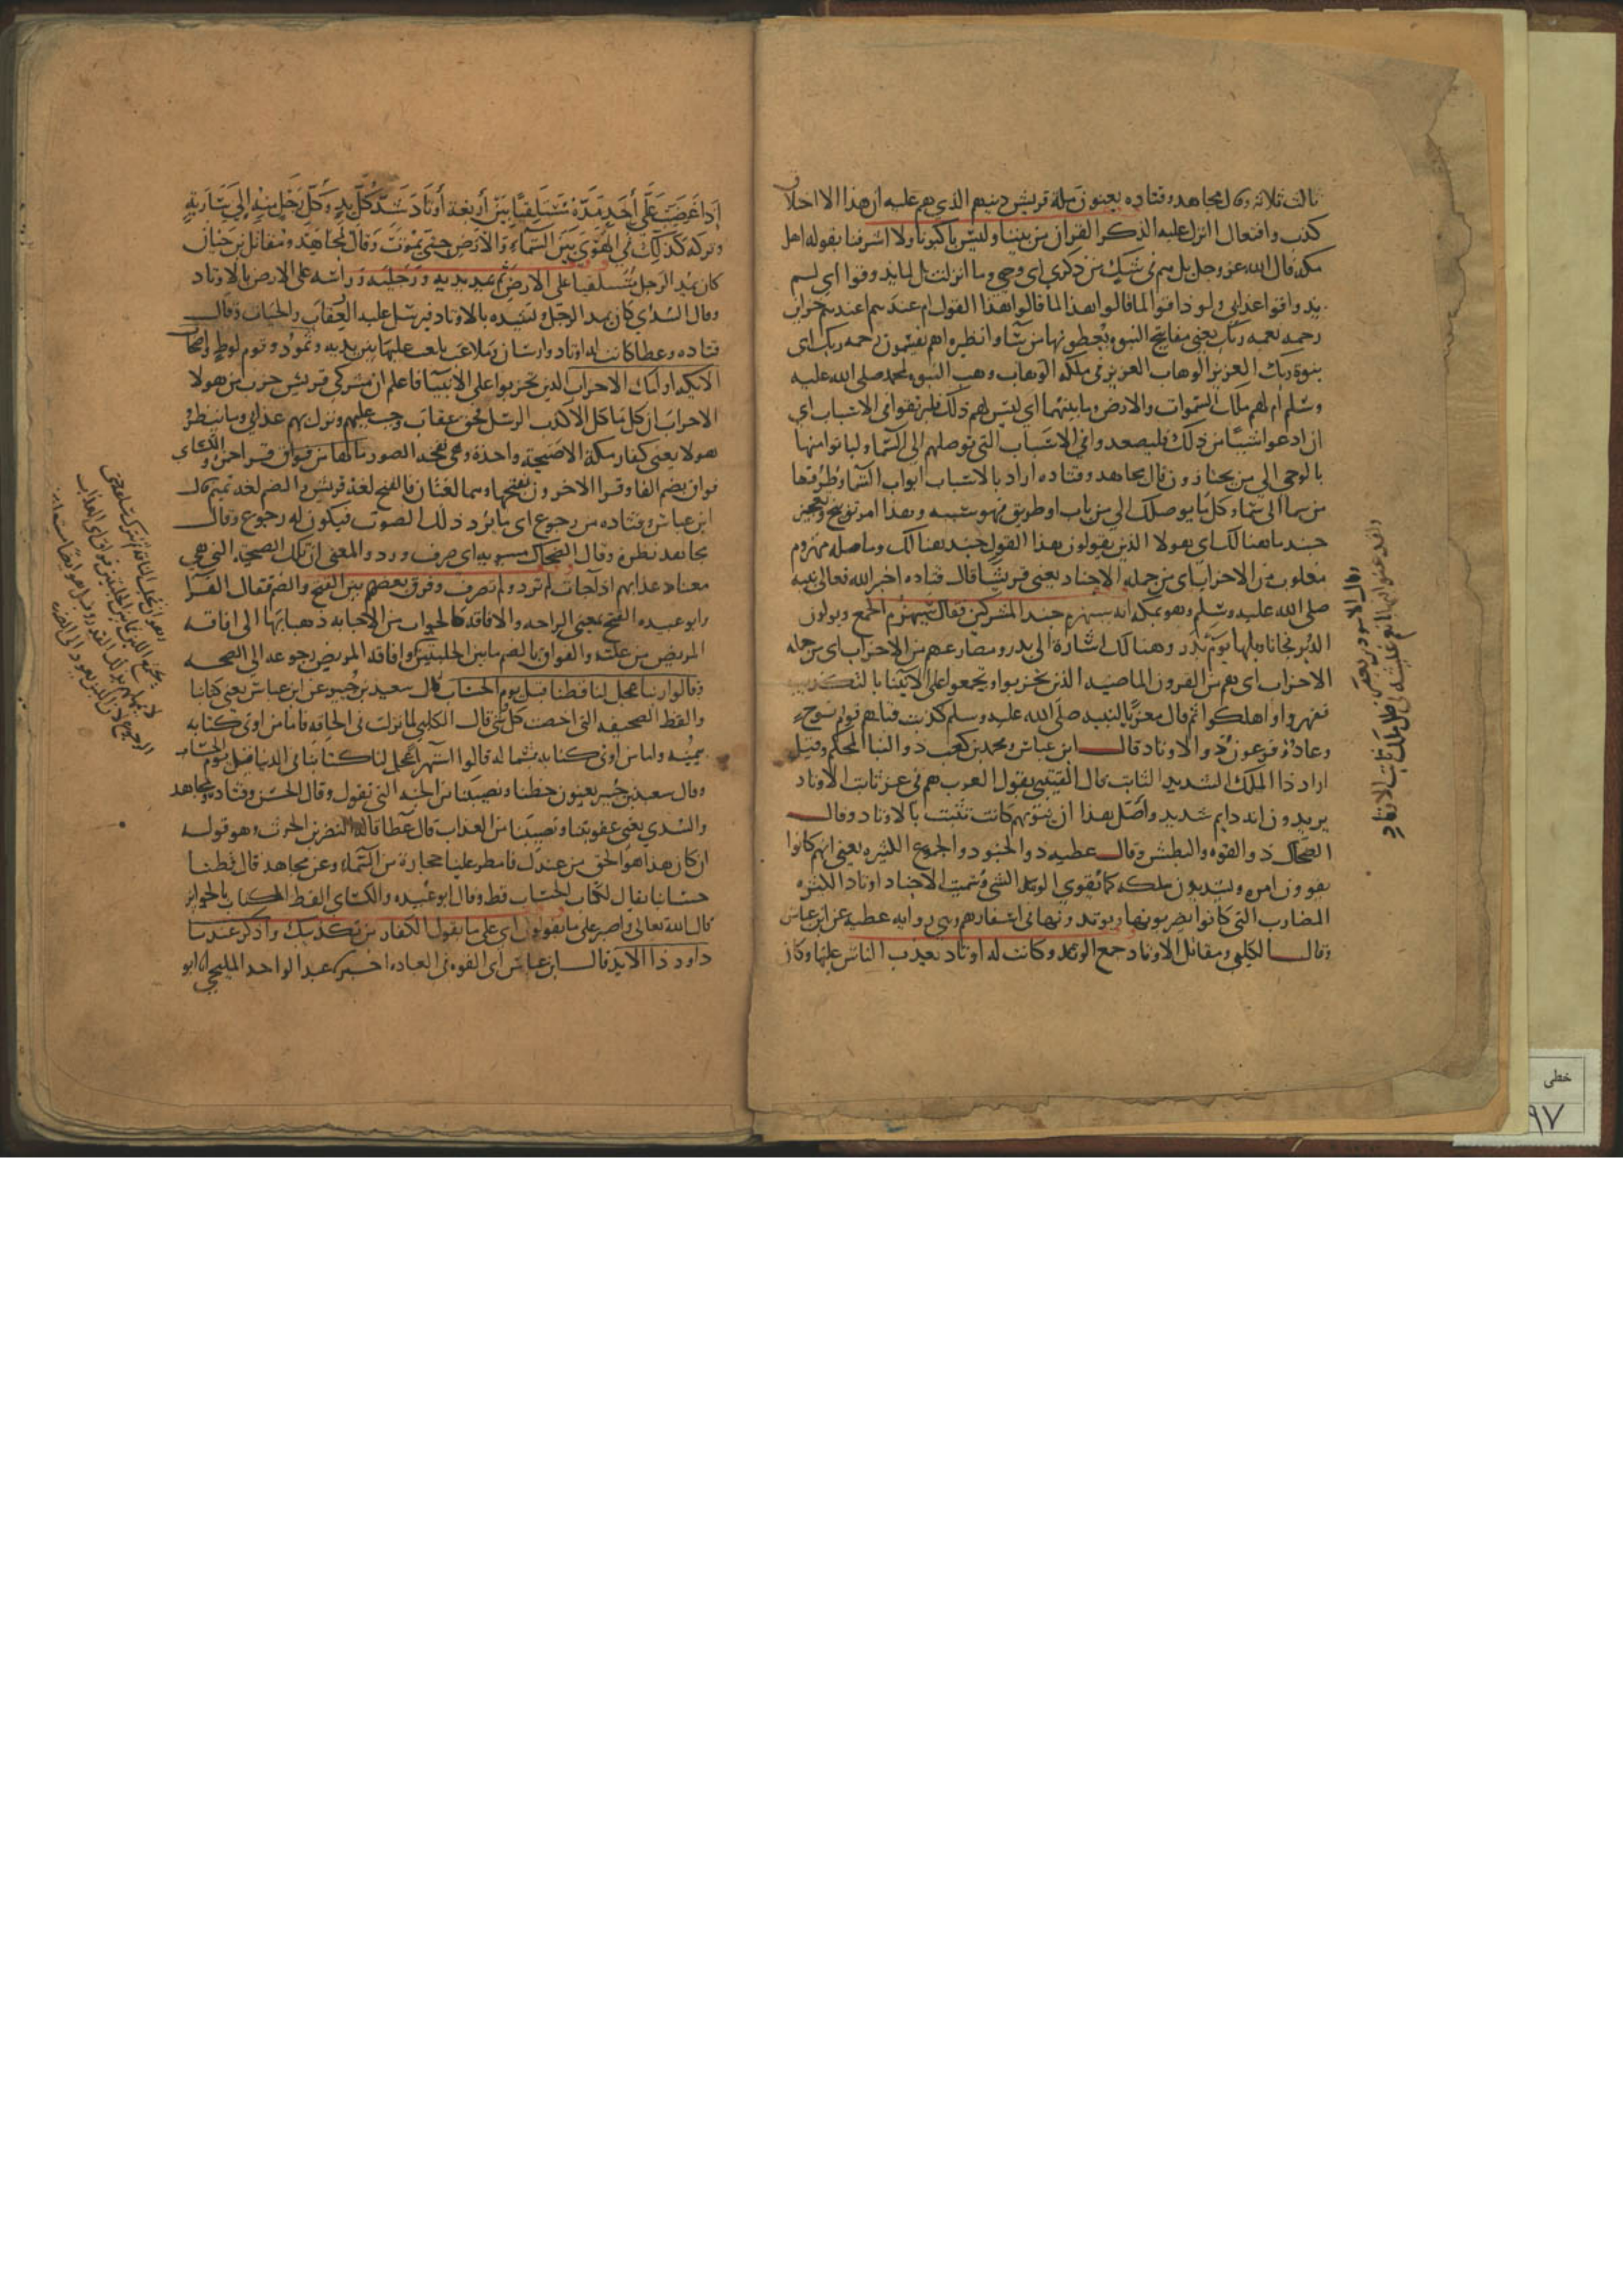 ثالث ثلاثه وقال مجاهد وقتاده يعنون ملة قريش دينهم الذي هم عليه ان هذا الا اختلاق
كذب وافتعال اانزل عليه الذكر القران من بيننا وليس باكبرنا ولا اشرفنا يقوله اهل
مكة قال الله عز وجل بل هم في شك من ذكري اي وحيي وما انزلت بل لما يذوقوا اي لم
يذوقوا عذابي ولو ذاقوا لما قالوا هذا القول ام عندهم اعندهم خزاين
رحمه نعمه ربك يعني مفاتيح النبوة يعطونها من شاوا نظيره اهم يقسمون رحمه ربك اي
نبوة ربك العزيز الوهاب العزيز في ملكه الوهاب وهب النبوة لمحمد صلى الله عليه
وسلم ام لهم ملك السموات والارض وما بينهما اي ليس لهم ذلك فليرتقوا في الاسباب اي
ان ادعوا شييا من ذلك فليصعدوا في الاسباب التي توصلهم الى السما وليأتوا منها
بالوحي الى من يختارون قال مجاهد وقتاده اراد بالاسباب ابواب السما وطرقها
من سما الى سما وكل ما يوصلك الى من باب او طريق فهو سببه وهذا امر توبيخ وتعجيز
جند ما هنالك اي هولا الذين يقولون هذا القول جند هنالك وما صله مهزوم
مغلوب من الاحزاب اي من جمله الاجناد يعني قريشا قال قتاده اخبر الله تعالى نبيه
صلى الله عليه وسلم وهو بمكه انه سيهزم جند المشركين فقال سيهزم الجمع ويولون
الدبر فجا تاويلها يوم بدر وهنالك اشارة الى بدر ومصارعهم من الاحزاب اي من جمله
الاحزاب اي هم من القرون الماضيه الذين تحزبوا وتجمعوا على الانبيا بالتكذيب
فقهروا واهلكوا ثم قال معزيا لنبيه صلى الله عليه وسلم كذبت قبلهم قوم نوح
وعاد وفرعون ذو الاوتاد قال ابن عباس ومحمد بن كعب ذو البنا المحكم وقيل
اراد ذا الملك الشديد الثابت قال القتيبي يقول العرب هم في عز ثابت الاوتاد
يريدون انه دايم شديد واصل هذا ان بيوتهم كانت تثبت بالاوتاد وقال
الضحاك ذو القوه والبطش وقال عطيه ذو الجنود والجموع الكثيره يعني انهم كانوا
يقوون امره ويشيدون ملكه كما يقوي الوتد الشي وسميت الاجناد اوتادا لكثره
المضارب التي كانوا يضربونها ويوتدونها في اسفارهم وهي روايه عطيه عن ابن عباس
وقال الكلبي ومقاتل الاوتاد جمع الوتد وكانت له اوتاد يعذب الناس عليها وكان
وقال الاسود بن يعفر
ولقد غنوا فيها بانعم عيشة في ظل ملك ثابت الاوتاد
اذا غضب على احد مده مستلقيا بين اربعة اوتاد شد كل يد وكل رجل منه الى سارية
وتركه كذلك في الهوى بين السماء والارض حتى يموت وقال مجاهد ومقاتل بن حيان
كان يمد الرجل مستلقيا على الارض ثم يمد يديه ورجليه وراسه على الارض بالاوتاد
وقال السدي كان يمد الرجل ويشده بالاوتاد فيرسل عليه العقاب والحيات وقال
قتاده وعطا كانت له اوتاد وارسان وملاعب يلعب عليها بين يديه وثمود وقوم لوط واصحاب
الايكه اوليك الاحزاب الذين تحزبوا على الانبيا فاعلم ان مشركي قريش حزب من هولا
الاحزاب ان كل ما كل الا كذب الرسل فحق عقاب وجب عليهم ونزل بهم عذابي وما ينظر
هولا يعني كفار مكة الا صيحة واحدة وهي نفخه الصور ما لها من فواق قرا حمزة والكساي
فواق بضم الفا وقرا الاخرون بفتحها وهما لغتان فالفتح لغة قريش والضم لغة تميم قال
ابن عباس وقتاده من رجوع اي ما يرد ذلك الصوت فيكون له رجوع وقال
مجاهد نظرة وقال الضحاك مثنويه اي صرف ورد والمعنى ان تلك الصيحه التي هي
معناد عذابهم اذا جات لم ترد ولم تصرف وفرق بعضهم بين الفتح والضم فقال الفرا
وابو عبيده الفتح بمعنى الراحه والافاقه كالجواب من الاجابه ذهبا بها الى افاقه
المريض من علته والفواق بالضم ما بين الحلبتين وافاقه المريض رجوعه الى الصحه
وقالوا ربنا عجل لنا قطنا قبل يوم الحساب قال سعيد بن جبير عن ابن عباس يعني كتابنا
والقط الصحيفه التي احصت كل شي قال الكلبي لما نزلت في الحاقه فاما من اوتي كتابه
بيمينه واما من اوتي كتابه بشماله قالوا استهزا عجل لنا كتابنا في الدنيا قبل يوم الحساب
وقال سعيد بن جبير يعنون حظنا ونصيبنا من الجنه التي تقول وقال الحسن وقتادة ومجاهد
والسدي يعني عقوبتنا ونصيبنا من العذاب قال عطا قاله النضر بن الحرث وهو قوله
ان كان هذا هو الحق من عندك فامطر علينا حجارة من السماء وعن مجاهد قال قطنا
حسابنا يقال لكتاب الحساب قط وقال ابو عبيده والكساي القط الكتاب بالجوايز
قال الله تعالى واصبر على ما يقولون اي على ما يقول الكفار من تكذيبك واذكر عبدنا
داود ذا الايد قال ابن عباس اي القوه في العباده اخبركم عبد الواحد المليحي انا ابو
خطی
۹۷